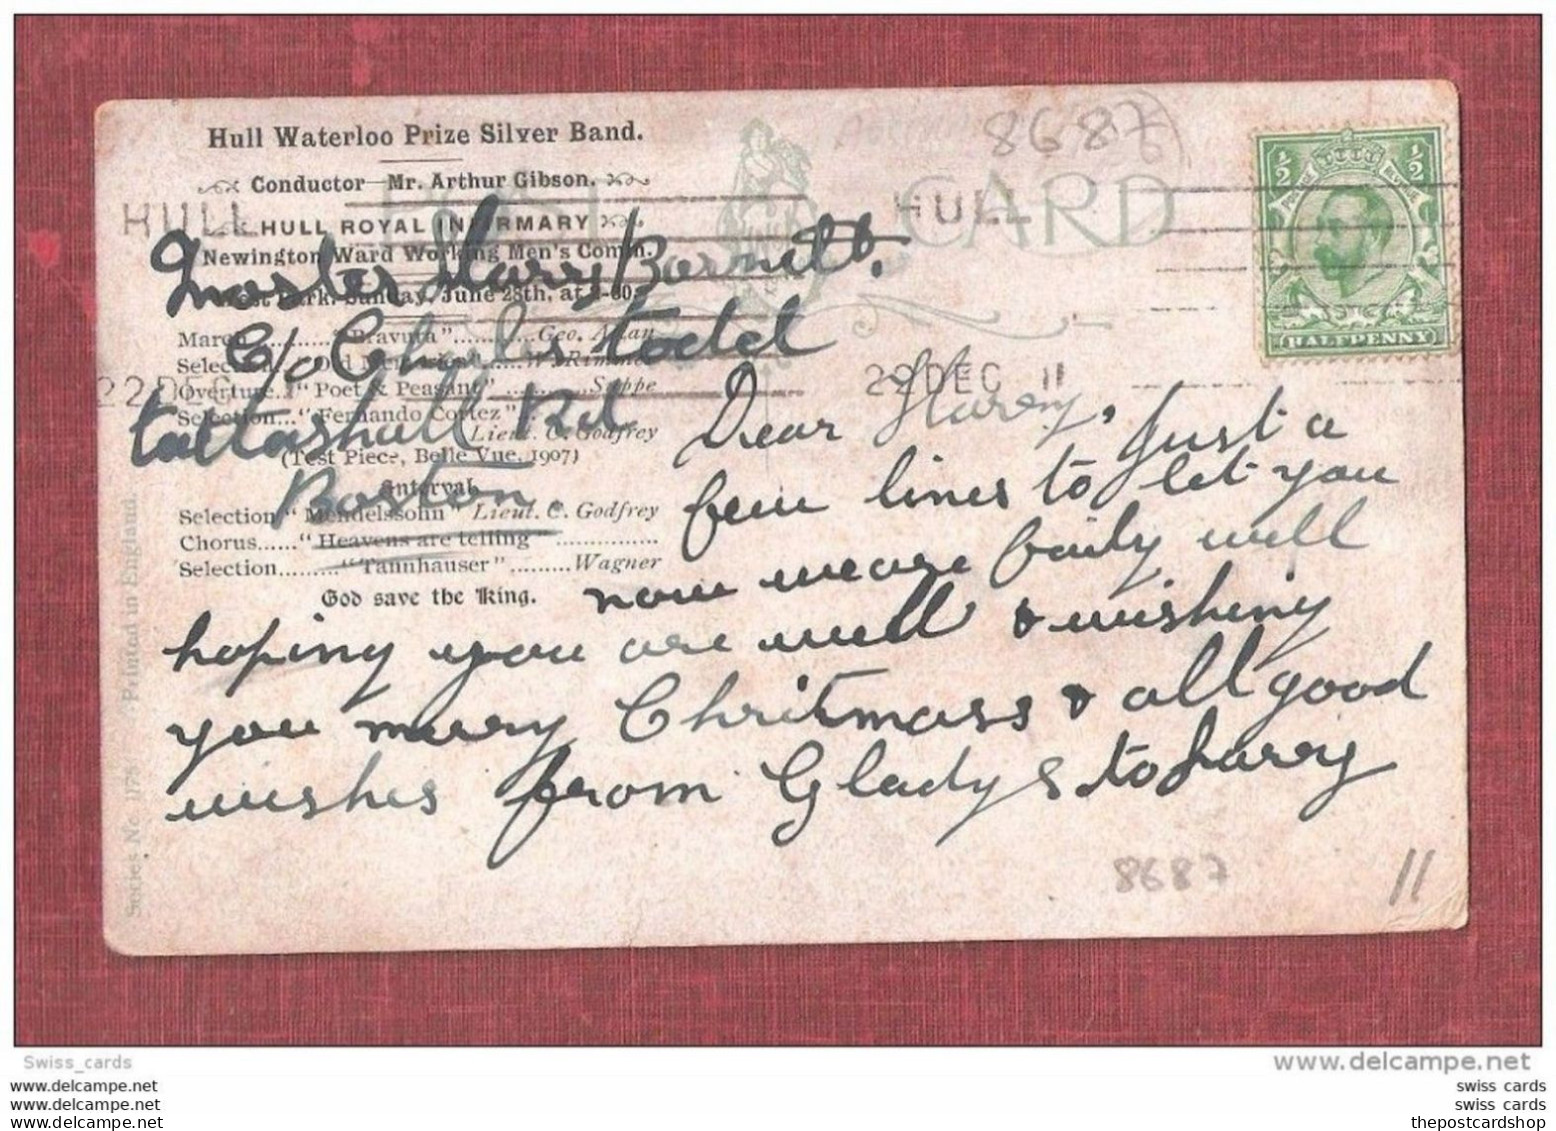 Hull Waterloo Prize Silver Band.
Conductor Mr. Arthur Gibson.
HULL ROYAL INFIRMARY
Newington Ward Working Men's Comm.
Park, Sunday, June 28th, at
March "Bravura" Geo. Allan
Selection Rimmer
Overture "Poet & Peasant" Suppe
Selection "Fernando Cortez"
Lieut. C. Godfrey
(Test Piece, Belle Vue, 1907)
Interval.
Selection "Mendelssohn" Lieut. C. Godfrey
Chorus...... "Heavens are telling" ...............
Selection......... "Tannhauser" ......... Wagner
God save the King.
POST CARD
8687
HULL
HULL
22 DEC
22 DEC 11
½ ½
HALFPENNY
Master Harry Barnett.
C/o Charls Todd
tattashall Rd
Boston
Dear Harry, Just a
few lines to let you
now weare faily well
hoping you are well & wishing
you merry Chritmass & all good
wishes from Gladys to harry
8687
11
Series No. 1778 Printed in England.
Swiss_cards
www.delcampe.net
www.delcampe.net
www.delcampe.net
www.delcampe.net
swiss cards
swiss cards
thepostcardshop